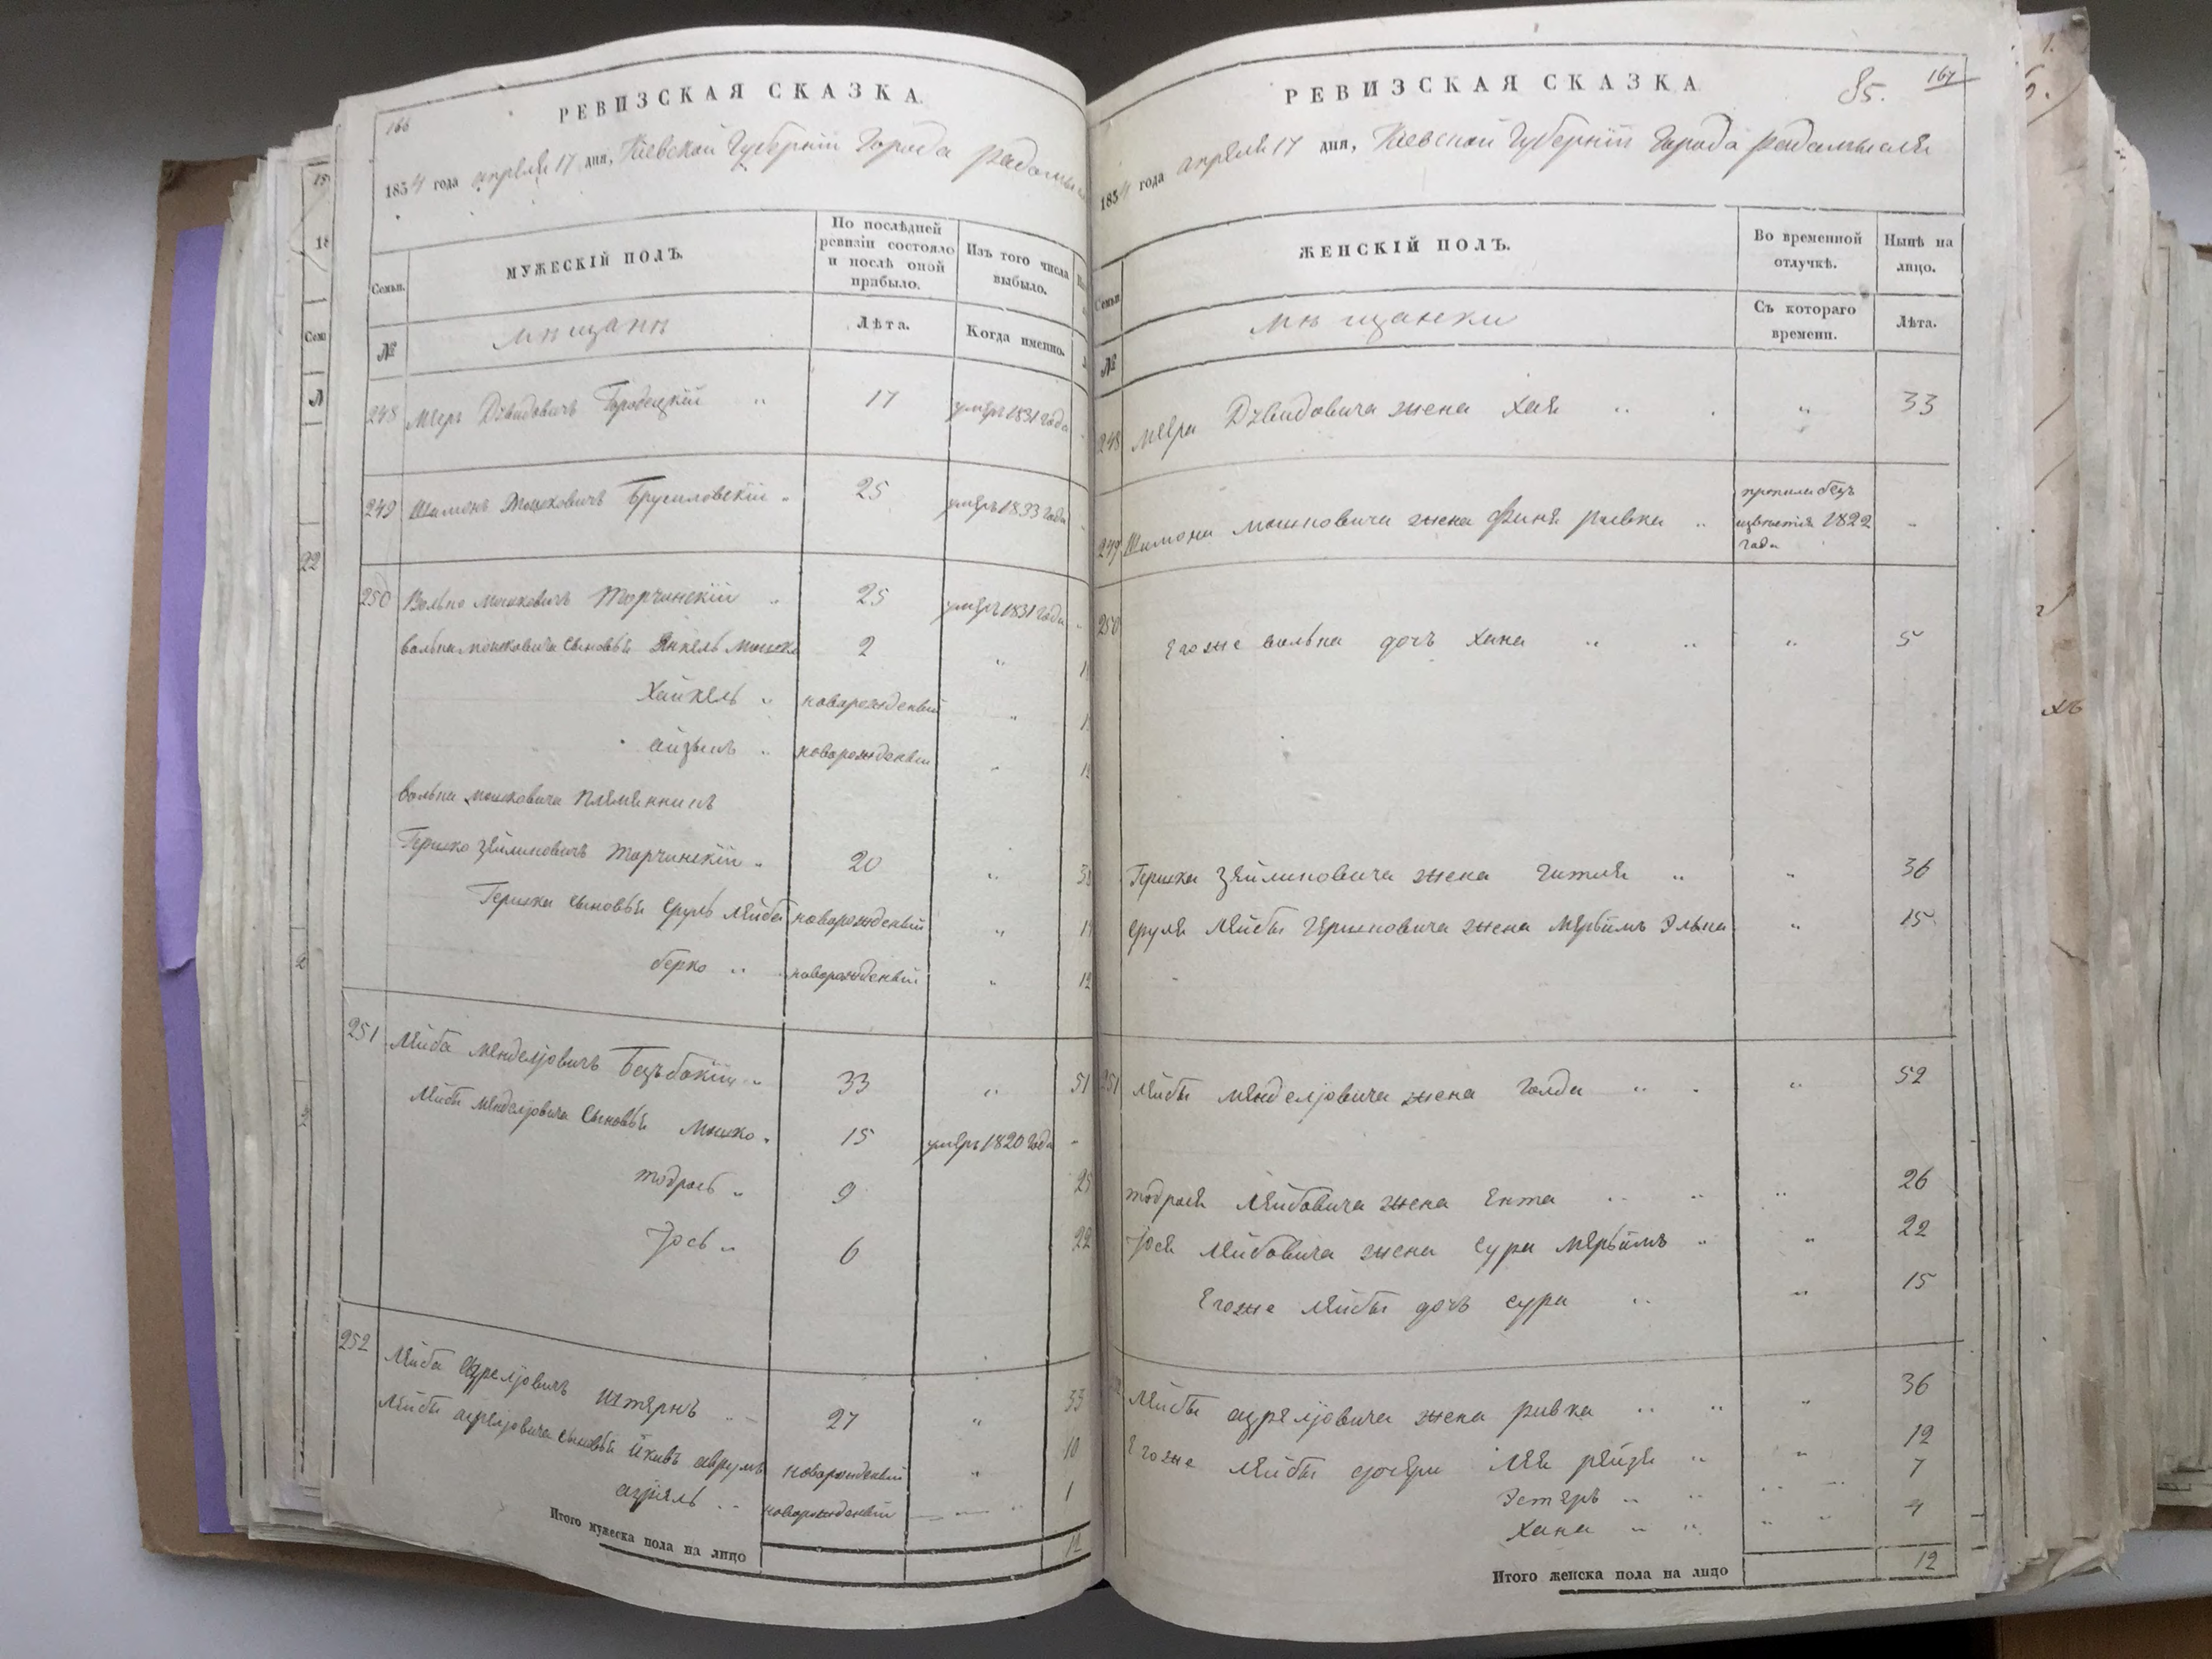 166
РЕВИЗСКАЯ СКАЗКА.
1834 года апреля 17 дня, Кіевской Губерніи Города Радомы
Семьи.
МУЖЕСКІЙ ПОЛЪ.
По послѣдней ревизіи состояло и послѣ оной прибыло.
Изъ того числа выбыло.
№
мѣщанѣ
Лѣта.
Когда именно.
248 Меръ Дувидовичъ Городецкій " 17 умеръ 1831 года
249 Шимонъ Мошковичъ Брусиловскій " 25 умеръ 1833 года
250 Волько Мошковичъ Торчинскій " 25 умеръ 1831 года
Вольки Мошковича сыновья Янкель Мошко 2 "
Хайкель " новорожденный "
Айзыкъ " новорожденный "
Вольки Мошковича племянникъ
Гершко Зейликовичъ Торчинскій " 20 "
Гершка сыновья Сруль Лейба новорожденный "
Берко " новорожденный "
251 Лейба Менделіовичъ Безъбокій " 33 " 51
Лейбы Менделіовича сыновья Мошко " 15 умеръ 1820 года "
Тодрось " 9 25
Іось " 6 22
252 Лейба Азреліовичъ Штернъ " 27 " 33
Лейбы Азреліовича сыновья Якивъ Аврумъ новорожденный " 10
Азріель " новорожденный " 1
Итого мужеска пола на лицо 12
РЕВИЗСКАЯ СКАЗКА
85. 167
1834 года апреля 17 дня, Кіевской Губерніи Города Радамысля
Семьи
ЖЕНСКІЙ ПОЛЪ.
Во временной отлучкѣ.
Нынѣ на лицо.
№
мѣщанки
Съ котораго времени.
Лѣта.
248 Мера Дувидовича жена Хая " " 33
249 Шимона Мошковича жена Финя Ривка " пропала безъ извѣстія 1822 года "
250 Егоже Волька дочъ Хана " " " 5
Гершка Зейликовича жена Гитля " " 36
Сруля Лейбы Гершковича жена Меръимъ Элька " 15
251 Лейбы Менделіовича жена Голда " " 52
Тодрося Лейбовича жена Ента " " 26
Іося Лейбовича жена Сура Меръимъ " " 22
Егоже Лейбы дочъ Сура " " 15
Лейбы Азреліовича жена Ривка " " " 36
Егоже Лейбы дочери Лея Рейзя " " 12
Эстеръ " " " 7
Хана " " " " 4
Итого женска пола на лицо 12